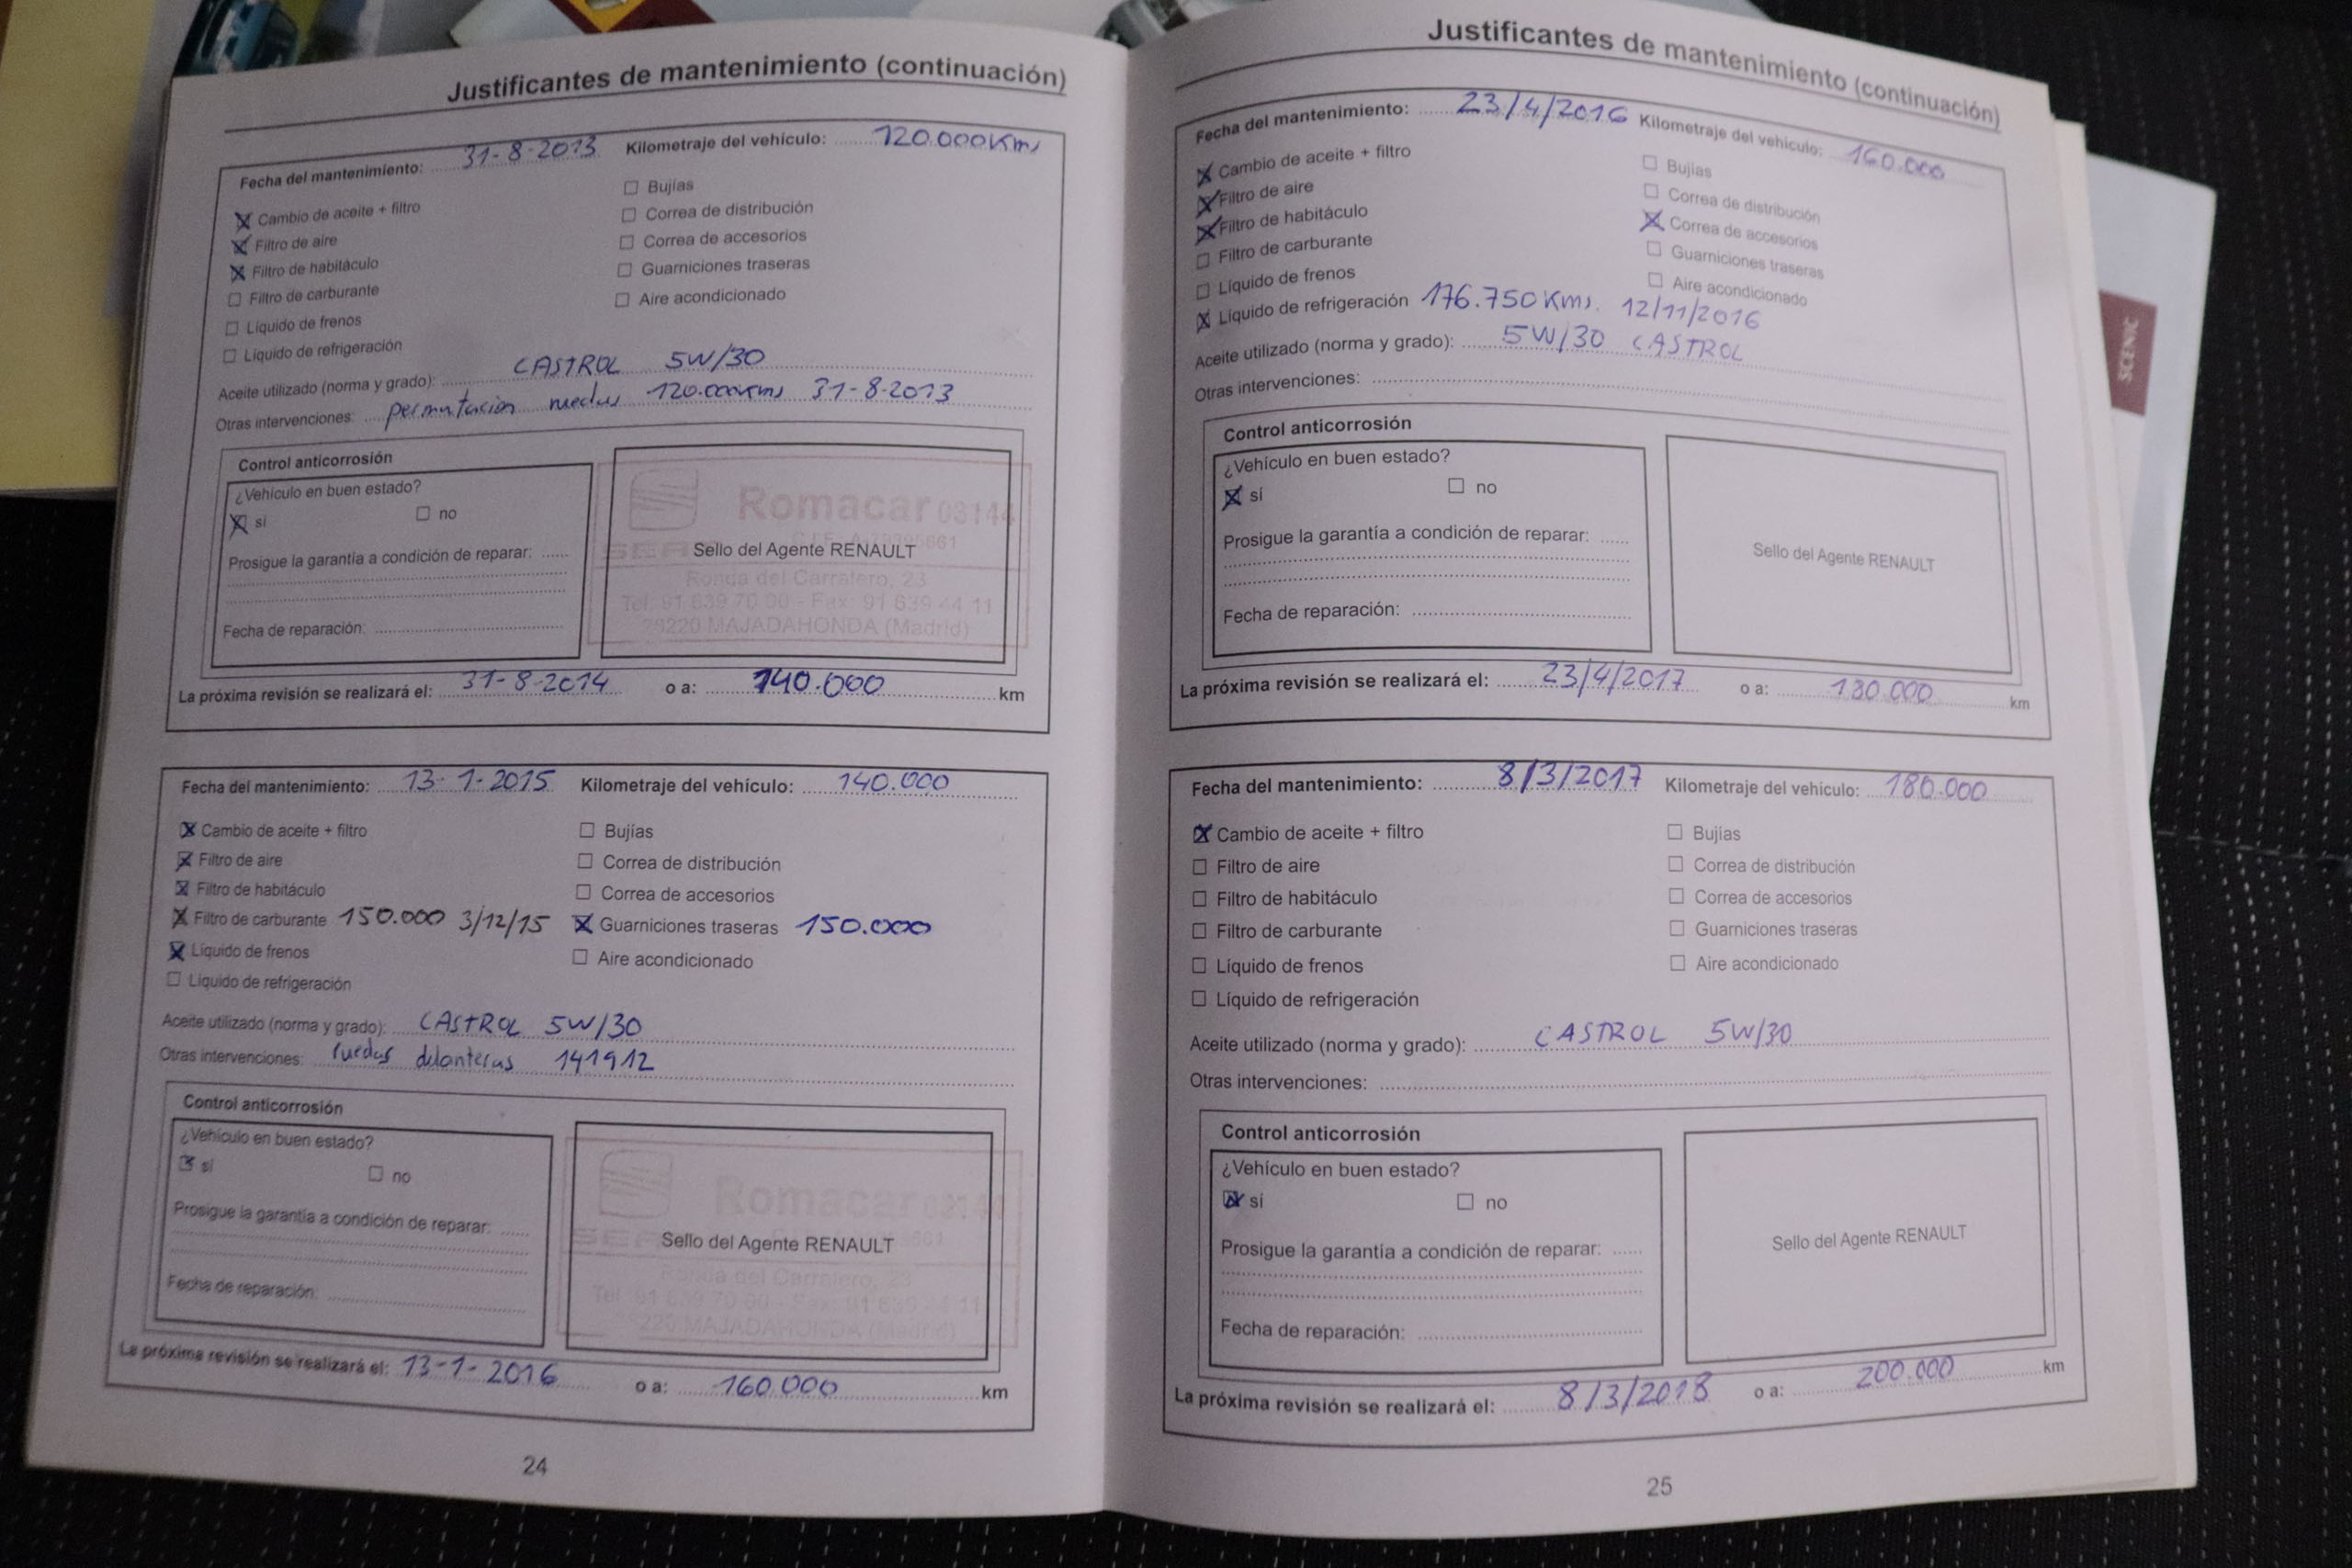 Justificantes de mantenimiento (continuación)
Fecha del mantenimiento: 31-8-2013 Kilometraje del vehículo: 120.000Kms
Cambio de aceite + filtro
Filtro de aire
Filtro de habitáculo
Filtro de carburante
Líquido de frenos
Líquido de refrigeración
Bujías
Correa de distribución
Correa de accesorios
Guarniciones traseras
Aire acondicionado
Aceite utilizado (norma y grado): CASTROL 5W/30
Otras intervenciones: permutacion ruedas 120.000Kms 31-8-2013
Control anticorrosión
¿Vehículo en buen estado?
sí no
Prosigue la garantía a condición de reparar:
Fecha de reparación:
Romacar 03144
SEAT
Sello del Agente RENAULT
Ronda del Carralero, 23
Tel: 91 639 70 00 - Fax: 91 639 44 11
28220 MAJADAHONDA (Madrid)
La próxima revisión se realizará el: 31-8-2014 o a: 140.000 km
Fecha del mantenimiento: 13-1-2015 Kilometraje del vehículo: 140.000
Cambio de aceite + filtro
Filtro de aire
Filtro de habitáculo
Filtro de carburante 150.000 3/12/15
Líquido de frenos
Líquido de refrigeración
Bujías
Correa de distribución
Correa de accesorios
Guarniciones traseras 150.000
Aire acondicionado
Aceite utilizado (norma y grado): CASTROL 5W/30
Otras intervenciones: ruedas delanteras 141912
Control anticorrosión
¿Vehículo en buen estado?
sí no
Prosigue la garantía a condición de reparar:
Fecha de reparación:
Romacar
Sello del Agente RENAULT
Tel: 91 639 70 00 - Fax: 91 639 44 11
MAJADAHONDA (Madrid)
La próxima revisión se realizará el: 13-1-2016 o a: 160.000 km
24
Justificantes de mantenimiento (continuación)
Fecha del mantenimiento: 23/4/2016 Kilometraje del vehículo: 160.000
Cambio de aceite + filtro
Filtro de aire
Filtro de habitáculo
Filtro de carburante
Líquido de frenos
Líquido de refrigeración 176.750 Kms. 12/11/2016
Bujías
Correa de distribución
Correa de accesorios
Guarniciones traseras
Aire acondicionado
Aceite utilizado (norma y grado): 5W/30 CASTROL
Otras intervenciones:
Control anticorrosión
¿Vehículo en buen estado?
sí no
Prosigue la garantía a condición de reparar:
Fecha de reparación:
Sello del Agente RENAULT
La próxima revisión se realizará el: 23/4/2017 o a: 180.000 km
Fecha del mantenimiento: 8/3/2017 Kilometraje del vehículo: 180.000
Cambio de aceite + filtro
Filtro de aire
Filtro de habitáculo
Filtro de carburante
Líquido de frenos
Líquido de refrigeración
Bujías
Correa de distribución
Correa de accesorios
Guarniciones traseras
Aire acondicionado
Aceite utilizado (norma y grado): CASTROL 5W/30
Otras intervenciones:
Control anticorrosión
¿Vehículo en buen estado?
sí no
Prosigue la garantía a condición de reparar:
Fecha de reparación:
Sello del Agente RENAULT
La próxima revisión se realizará el: 8/3/2018 o a: 200.000 km
25
SCENIC